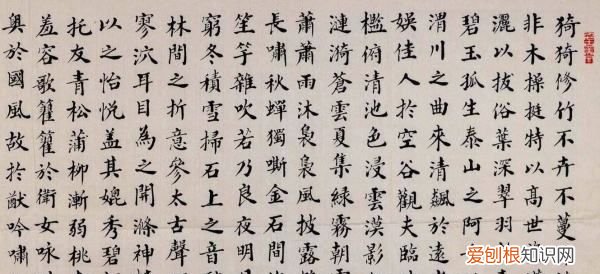 猗猗修竹不卉不蔓
非木操挺特以高世
灑以拔俗葉深翠羽
碧玉孤生泰山之阿
渭川之曲來清飆於遠
娛佳人於空谷觀夫臨
檻俯清池色浸雲漢影
漣漪蒼雲夏集綠霧朝
蕭蕭雨沐裊裊風披露
長嘯秋蟬獨嘶金石間
笙竽雜吹若乃良夜明
窮冬積雪掃石上之
林間之折意參太古聲
寥泬耳目為之開滌神
以之怡悅蓋其媲秀碧
托友青松蒲柳漸弱桃
羞容歌籊籊於衛女咏
奧於國風故於猷吟嘯
爱刨根知识网